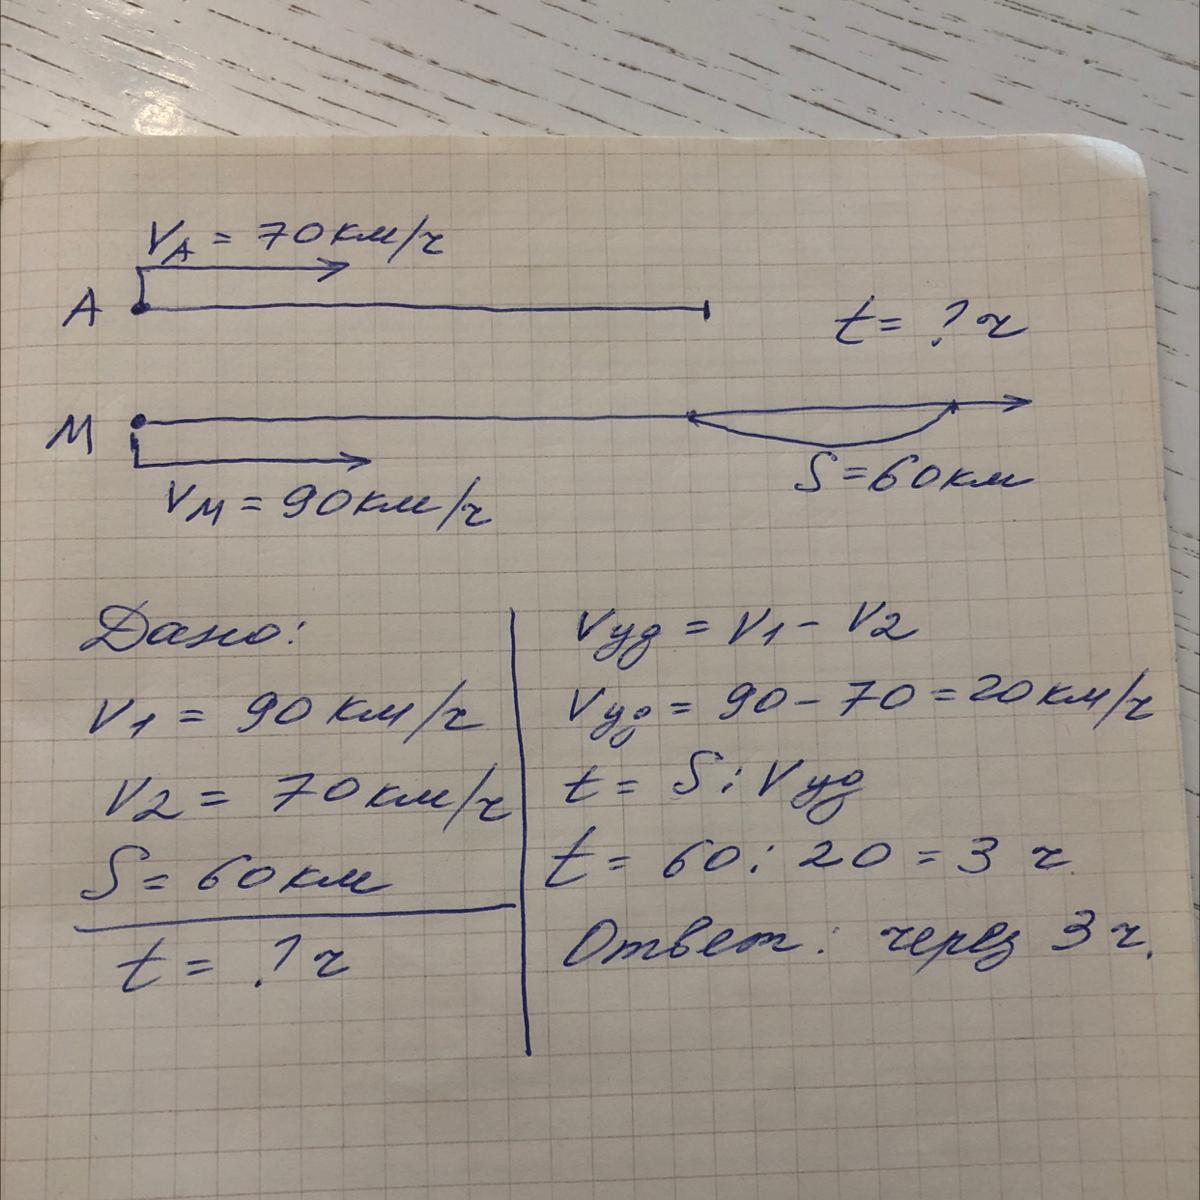 VА = 70км/ч
А
t = ? ч
М
S = 60км
VМ = 90км/ч
Дано:
V1 = 90 км/ч
V2 = 70км/ч
S = 60км
t = ? ч
Vуд = V1 - V2
Vуд = 90 - 70 = 20км/ч
t = S : Vуд
t = 60 : 20 = 3 ч
Ответ: через 3 ч.